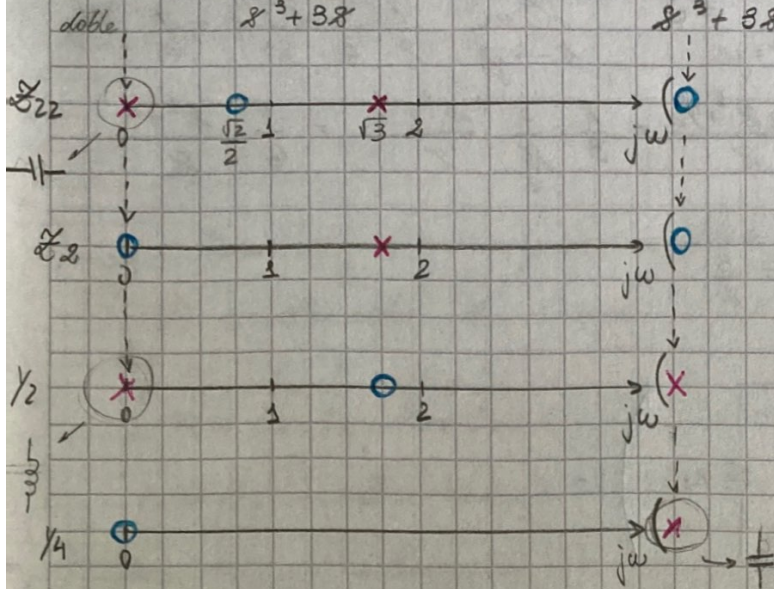 doble 8³ + 38 8³ + 38
Z22 0 √2/2 1 √3 2 jω
Z2 0 1 2 jω
Y2 0 1 2 jω
Y4 0 jω